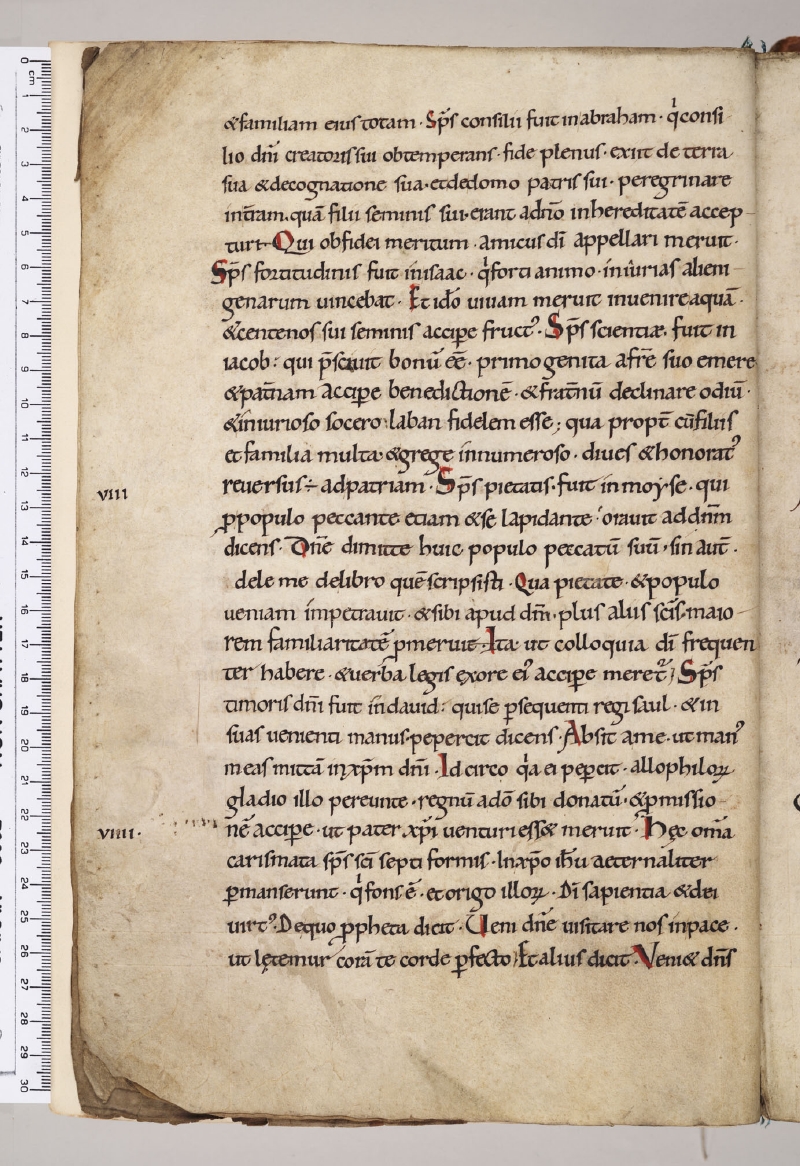 &familiam eius totam · Sp̄s consilii fuit in abraham · qͥ consi
lio dn̄i creatoris sui obtemperans · fide plenus · exiit de terra
sua & de cognatione sua · et de domo patris sui · peregrinare
in t̄ram · quā filii seminis sui · erant ad n̄o in hereditatē accep
turi · Qui ob fidei meritum · amicus dī appellari meruit ·
Sp̄s fortitudinis fuit in isaac · qͥ forti animo · iniurias alieni
genarum uincebat · Et id̄o uiuam meruit inuenire aquā ·
& centenos sui seminis accipe fruct᾽ · Sp̄s scientiæ · fuit in
iacob : qui p̄sciuit bonū ēē · primogenita a fr̄e suo emere
& pat̄nam accipe benedictionē · & frat̄nū declinare odiū ·
& iniurioso socero laban fidelem esse ; qua propt̄ cū filiis
et familia multa · & grege innumeroso · diues & honorat᾽
reuersus÷ ad patriam · Sp̄s pietatis · fuit in moẏse · qui
viii
ꝓ populo peccante etiam & se lapidante · orauit ad dn̄m
dicens · Dn̄e dimitte huic populo peccatū suū · sin aut̄ ·
dele me de libro quē scripsisti · Qua pietate · & populo
ueniam impetrauit · & sibi apud dn̄i · plus aliis sc̄is · maio
rem familiaritatē ꝓmeruit · Ita ut colloquia dī frequen
ter habere · & uerba legis ex ore ei᾽ accipe meret᷑ ; Sp̄s
timoris dn̄i fuit in dauid : qui se ꝑsequenti regi saul · & in
suas uenienti manus · pepercit dicens · Absit a me · ut man᾽
meas mittā in xp̄m dn̄i · Id circo q̇a ei pepercit · allophiloꝝ
gladio illo pereunte · regnū a dō sibi donatū · & ꝓmissio
nē accipe · ut pater xp̄i uenturi ess& meruit · Hęc om̄a
viiii ·
carismata sp̄s sc̄i septiformis · In xp̄o ih̄u aeternaliter
ꝑmanserunt · qͥ fons ē · et origo illoꝝ · Dī sapientia & dei
uirt᾽ · De quo ꝓpheta dicit · Ueni dn̄e uisitare nos in pace ·
ut lętemur corā te corde ꝑfecto ; Et alius dicit · Veni& dn̄s